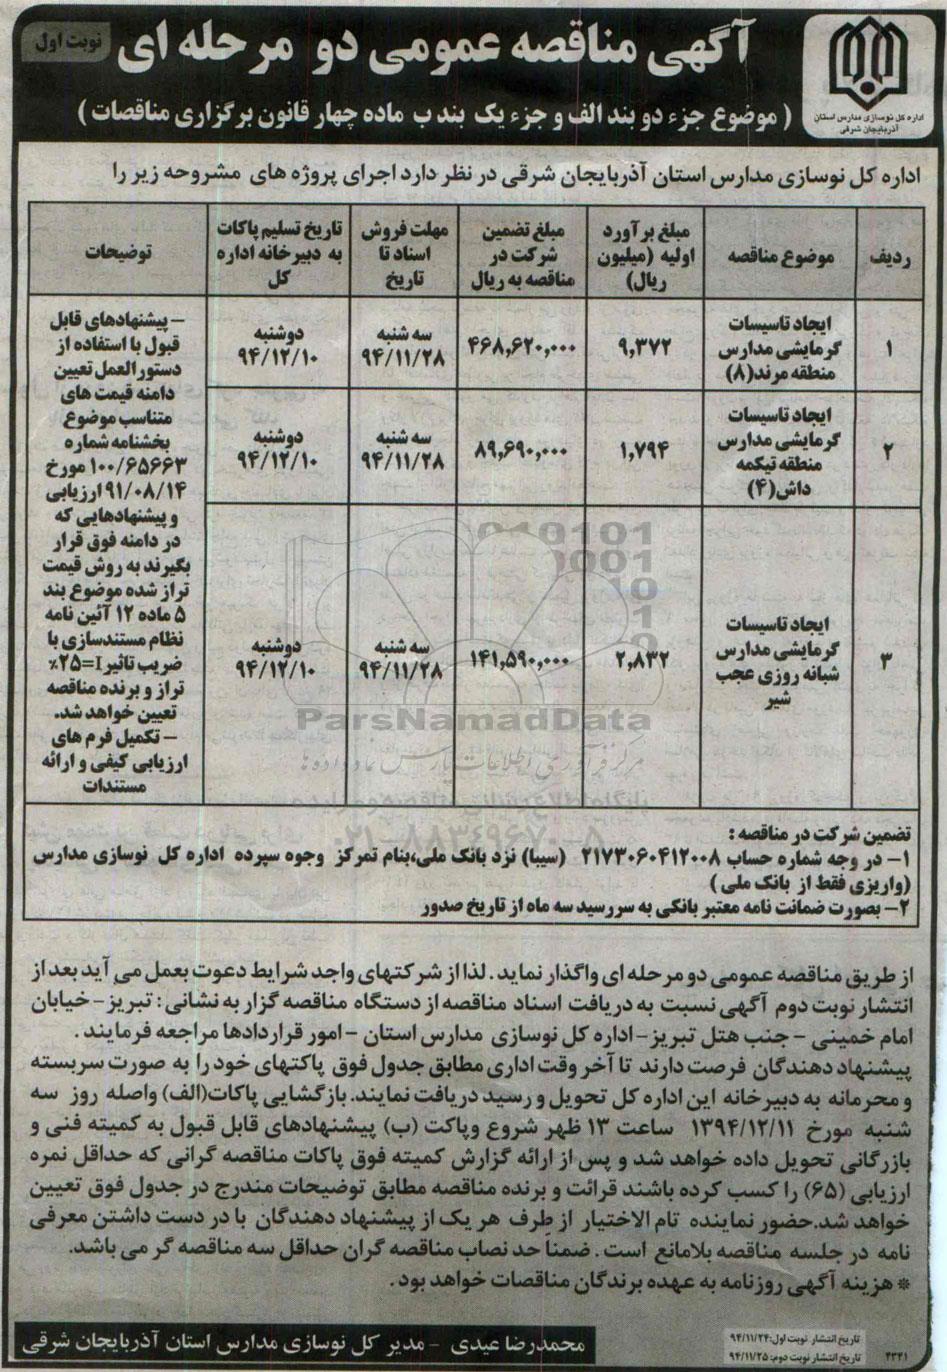 نوبت اول
آگهی مناقصه عمومی دو مرحله ای
( موضوع جزء دو بند الف و جزء یک بند ب ماده چهار قانون برگزاری مناقصات )
اداره کل نوسازی مدارس استان
آذربایجان شرقی
اداره کل نوسازی مدارس استان آذربایجان شرقی در نظر دارد اجرای پروژه های مشروحه زیر را
ردیف
موضوع مناقصه
مبلغ برآورد
اولیه (میلیون
ریال)
مبلغ تضمین
شرکت در
مناقصه به ریال
مهلت فروش
اسناد تا
تاریخ
تاریخ تسلیم پاکات
به دبیرخانه اداره
کل
توضیحات
۱
ایجاد تاسیسات
گرمایشی مدارس
منطقه مرند(۸)
۹,۳۷۲
۴۶۸,۶۲۰,۰۰۰
سه شنبه
۹۴/۱۱/۲۸
دوشنبه
۹۴/۱۲/۱۰
۲
ایجاد تاسیسات
گرمایشی مدارس
منطقه تیکمه
داش(۴)
۱,۷۹۴
۸۹,۶۹۰,۰۰۰
سه شنبه
۹۴/۱۱/۲۸
دوشنبه
۹۴/۱۲/۱۰
۳
ایجاد تاسیسات
گرمایشی مدارس
شبانه روزی عجب
شیر
۲,۸۳۲
۱۴۱,۵۹۰,۰۰۰
سه شنبه
۹۴/۱۱/۲۸
دوشنبه
۹۴/۱۲/۱۰
– پیشنهادهای قابل
قبول با استفاده از
دستور العمل تعیین
دامنه قیمت های
متناسب موضوع
بخشنامه شماره
۱۰۰/۶۵۶۶۳ مورخ
۹۱/۰۸/۱۴ ارزیابی
و پیشنهادهایی که
در دامنه فوق قرار
بگیرند به روش قیمت
تراز شده موضوع بند
۵ ماده ۱۲ آئین نامه
نظام مستندسازی با
ضریب تاثیر I=۲۵٪
تراز و برنده مناقصه
تعیین خواهد شد.
– تکمیل فرم های
ارزیابی کیفی و ارائه
مستندات
ParsNamadData
مرکز فرآوری اطلاعات پارس نماد داده ها
۰۲۱-۸۸۳۴۹۶۷۰-۵
تضمین شرکت در مناقصه :
۱- در وجه شماره حساب ۲۱۷۳۰۶۰۴۱۲۰۰۸ (سیبا) نزد بانک ملی،بنام تمرکز وجوه سپرده اداره کل نوسازی مدارس
(واریزی فقط از بانک ملی )
۲- بصورت ضمانت نامه معتبر بانکی به سررسید سه ماه از تاریخ صدور
از طریق مناقصه عمومی دو مرحله ای واگذار نماید . لذا از شرکتهای واجد شرایط دعوت بعمل می آید بعد از
انتشار نوبت دوم آگهی نسبت به دریافت اسناد مناقصه از دستگاه مناقصه گزار به نشانی : تبریز – خیابان
امام خمینی – جنب هتل تبریز – اداره کل نوسازی مدارس استان – امور قراردادها مراجعه فرمایند .
پیشنهاد دهندگان فرصت دارند تا آخر وقت اداری مطابق جدول فوق پاکتهای خود را به صورت سربسته
و محرمانه به دبیرخانه این اداره کل تحویل و رسید دریافت نمایند. بازگشایی پاکات(الف) واصله روز سه
شنبه مورخ ۱۳۹۴/۱۲/۱۱ ساعت ۱۳ ظهر شروع وپاکت (ب) پیشنهادهای قابل قبول به کمیته فنی و
بازرگانی تحویل داده خواهد شد و پس از ارائه گزارش کمیته فوق پاکات مناقصه گرانی که حداقل نمره
ارزیابی (۶۵) را کسب کرده باشند قرائت و برنده مناقصه مطابق توضیحات مندرج در جدول فوق تعیین
خواهد شد.حضور نماینده تام الاختیار از طرف هر یک از پیشنهاد دهندگان با در دست داشتن معرفی
نامه در جلسه مناقصه بلامانع است . ضمناً حد نصاب مناقصه گران حداقل سه مناقصه گر می باشد.
* هزینه آگهی روزنامه به عهده برندگان مناقصات خواهد بود .
تاریخ انتشار نوبت اول: ۹۴/۱۱/۲۴
تاریخ انتشار نوبت دوم: ۹۴/۱۱/۲۵
۴۳۴۱
محمدرضا عیدی – مدیر کل نوسازی مدارس استان آذربایجان شرقی